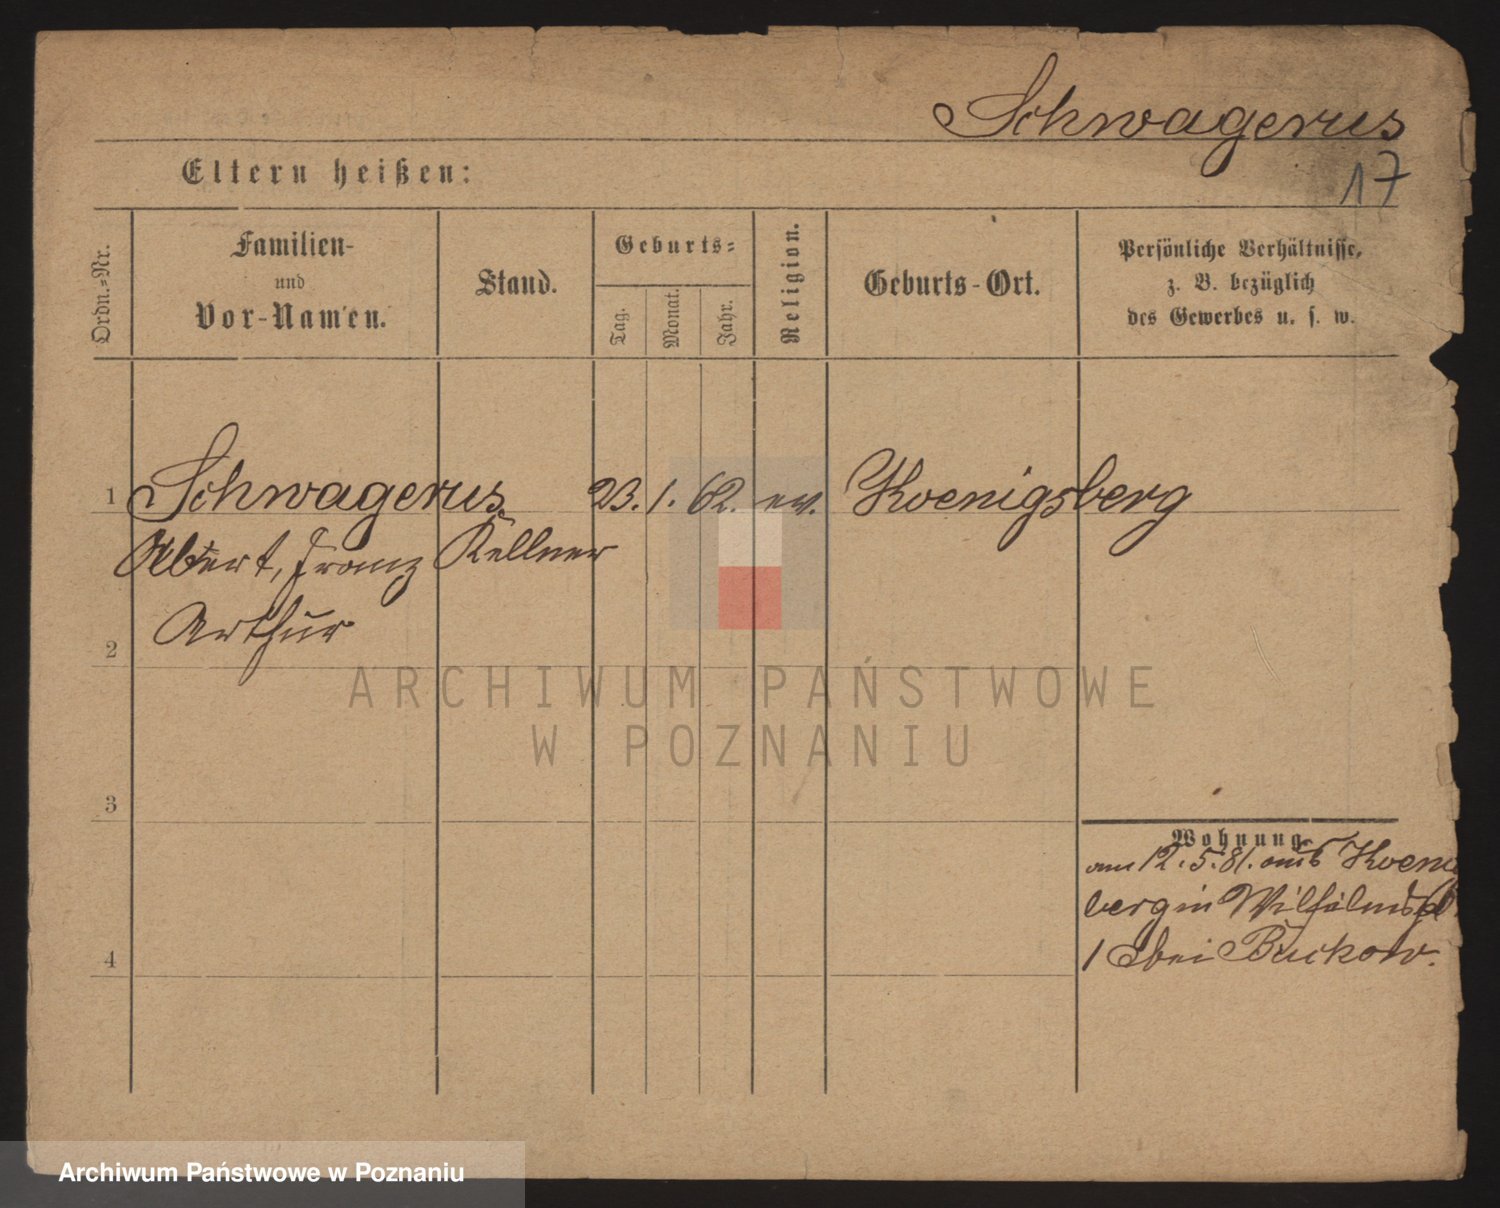 Schwagerus
17
Eltern heißen:
Ordn.-Nr.
Familien- und Vor-Namen.
Stand.
Geburts-
Tag.
Monat.
Jahr.
Religion.
Geburts-Ort.
Persönliche Verhältnisse,
z. B. bezüglich
des Gewerbes u. s. w.
1 Schwagerus 23. 1. 62. ev. Koenigsberg
Albert, Franz Kellner
Arthur
2
ARCHIWUM PAŃSTWOWE
W POZNANIU
3
Wohnung.
am 12.5.81. aus Koenigs
berg in
4
1 bei Buckow.
Archiwum Państwowe w Poznaniu